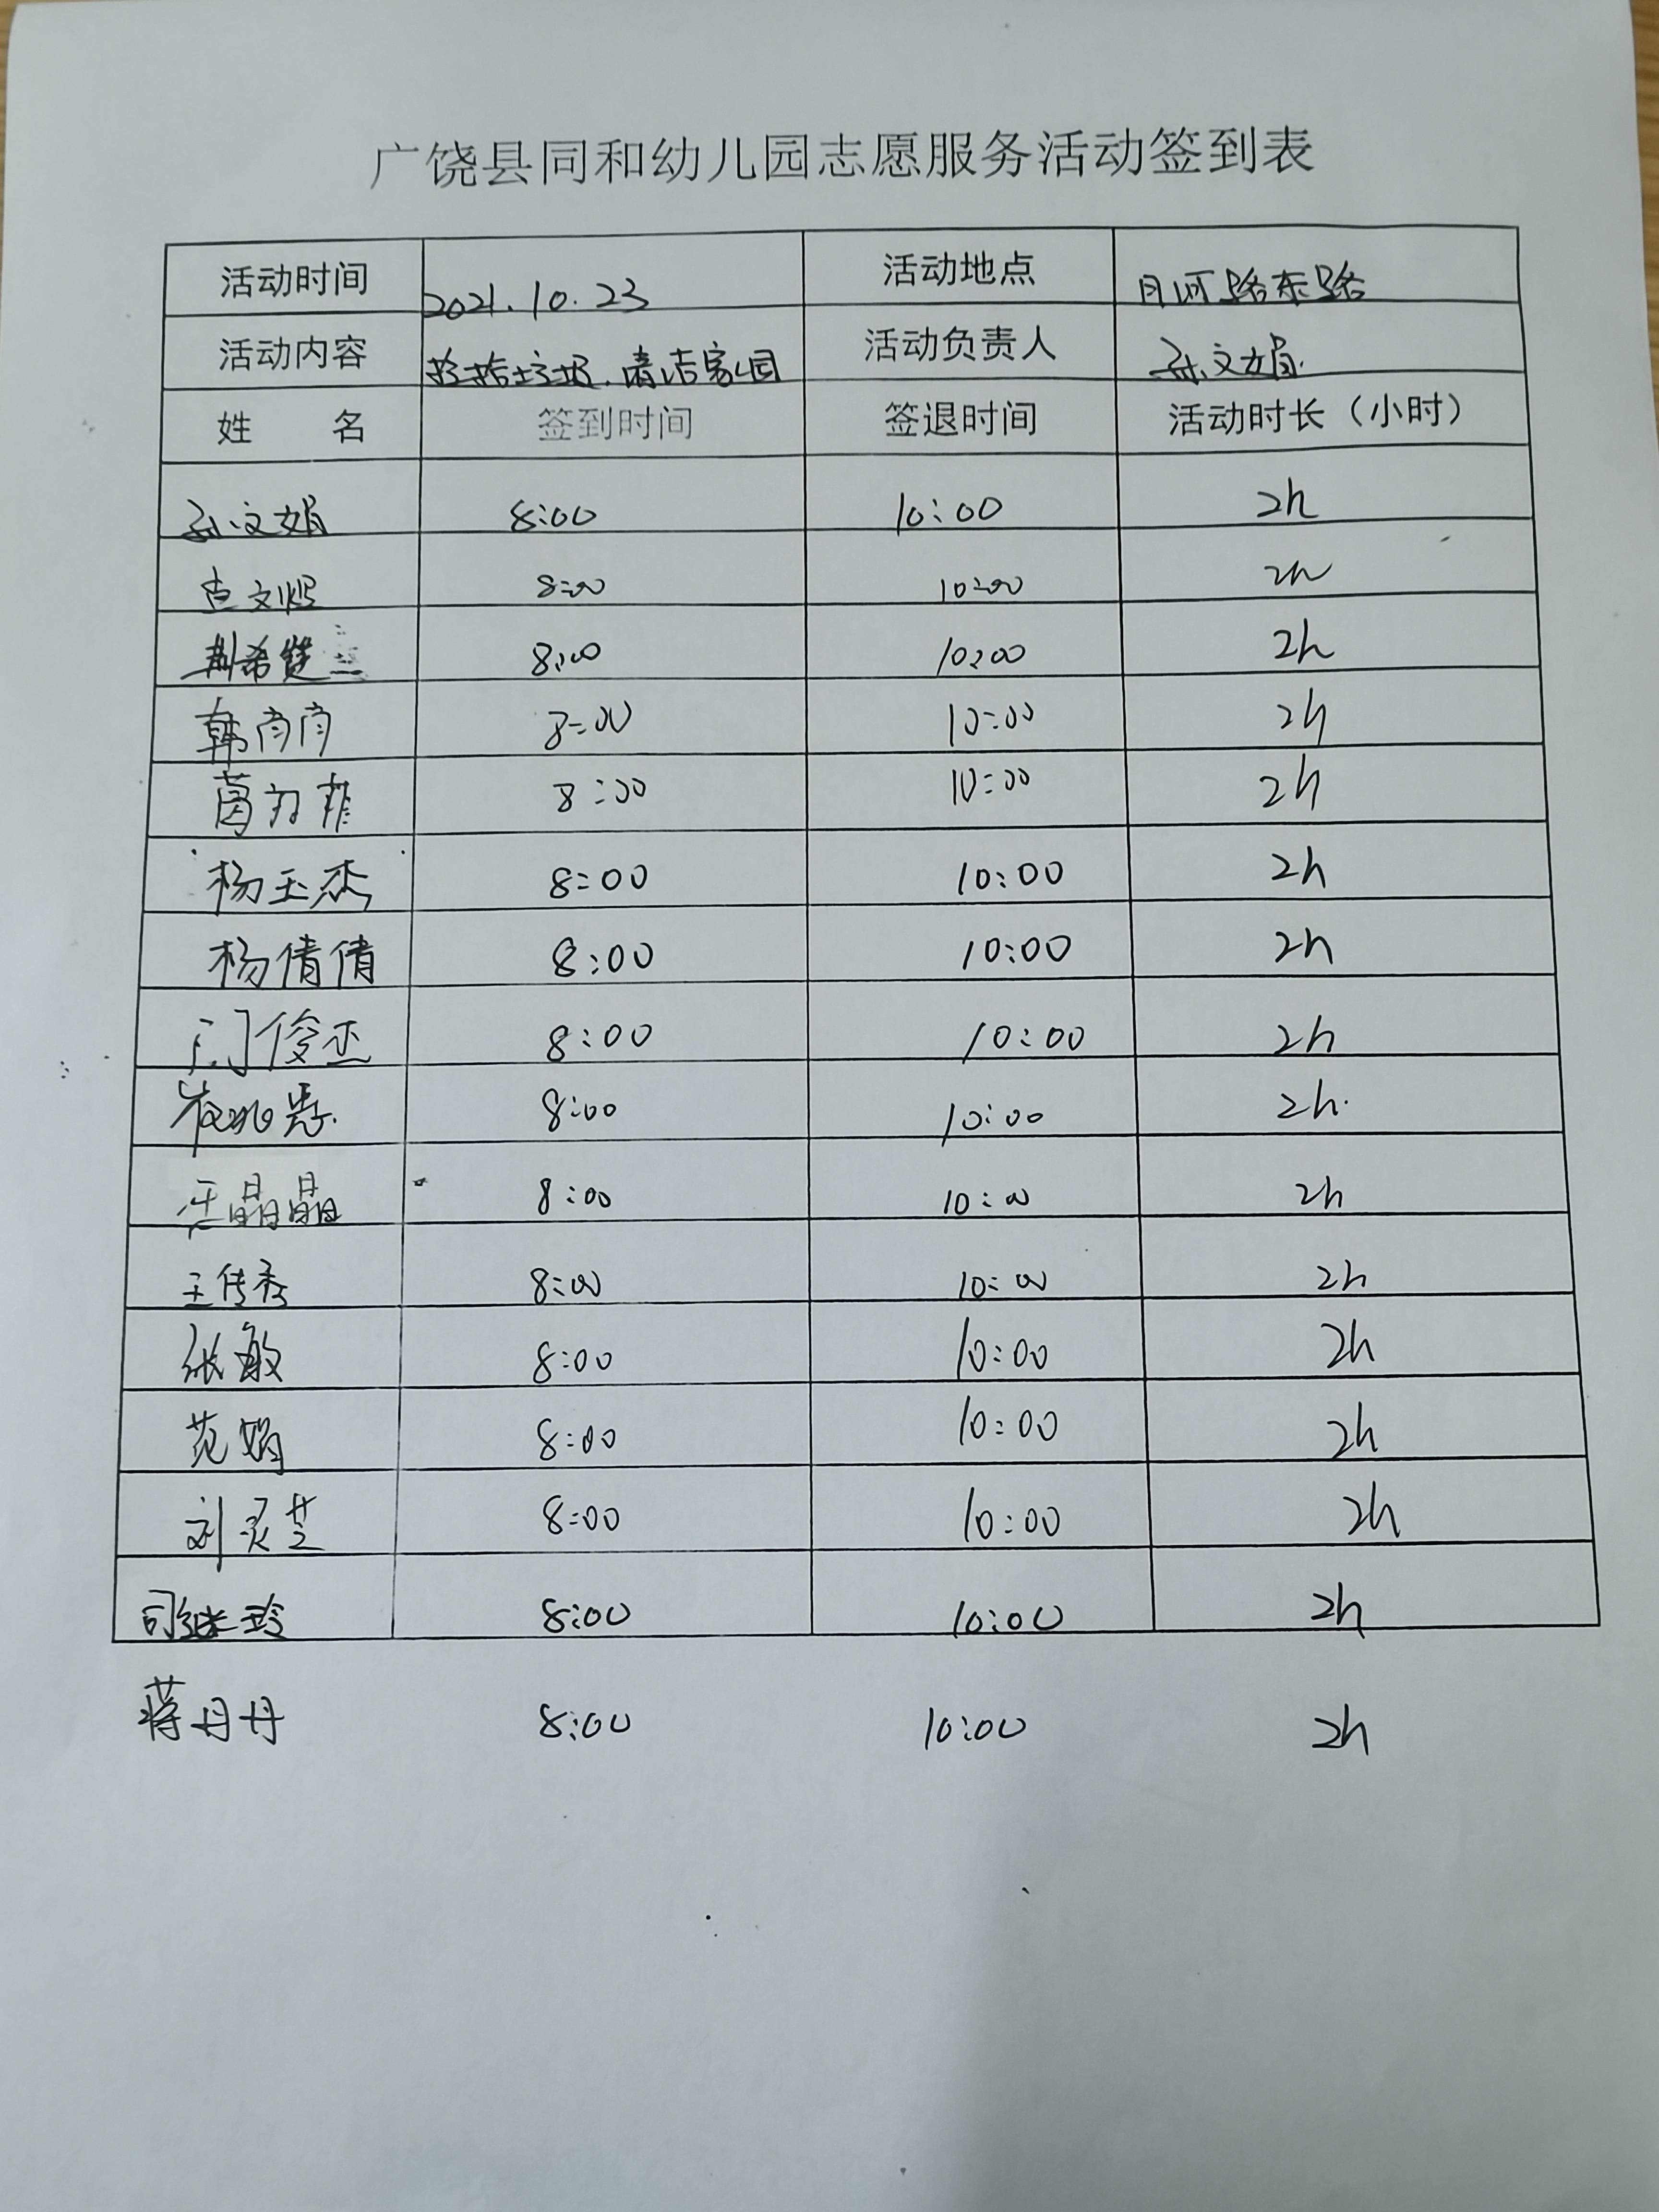 广饶县同和幼儿园志愿服务活动签到表
活动时间 2021.10.23 活动地点 月河路东路
活动内容 捡拾垃圾.清洁家园 活动负责人 孙文娟.
姓 名 签到时间 签退时间 活动时长（小时）
孙文娟 8:00 10:00 2h
8:00 10:00 2h
荆希 8:00 10:00 2h
韩肖肖 8:00 10:00 2h
葛 菲 8:00 10:00 2h
杨玉杰 8:00 10:00 2h
杨倩倩 8:00 10:00 2h
门俊 8:00 10:00 2h
8:00 10:00 2h.
晶晶 8:00 10:00 2h
王传秀 8:00 10:00 2h
张敏 8:00 10:00 2h
范娟 8:00 10:00 2h
刘灵芝 8:00 10:00 2h
司继玲 8:00 10:00 2h
蒋丹丹 8:00 10:00 2h